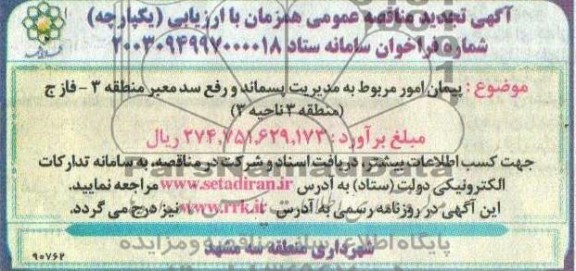 آگهی تجدید مناقصه عمومی همزمان با ارزیابی (یکپارچه)
شماره فراخوان سامانه ستاد ۲۰۰۳۰۹۴۹۹۷۰۰۰۰۱۸
موضوع : پیمان امور مربوط به مدیریت پسماند و رفع سد معبر منطقه ۳ - فاز ج
(منطقه ۳ ناحیه ۳)
مبلغ برآورد : ۲۷۴,۷۵۱,۶۲۹,۱۷۳ ریال
جهت کسب اطلاعات بیشتر، دریافت اسناد و شرکت در مناقصه، به سامانه تدارکات
الکترونیکی دولت (ستاد) به آدرس www.setadiran.ir مراجعه نمایید.
این آگهی در روزنامه رسمی به آدرس www.rrk.ir نیز درج می گردد.
شهرداری منطقه سه مشهد
۹۰۷۶۲
ParsNamadData
پایگاه اطلاع رسانی مناقصه و مزایده